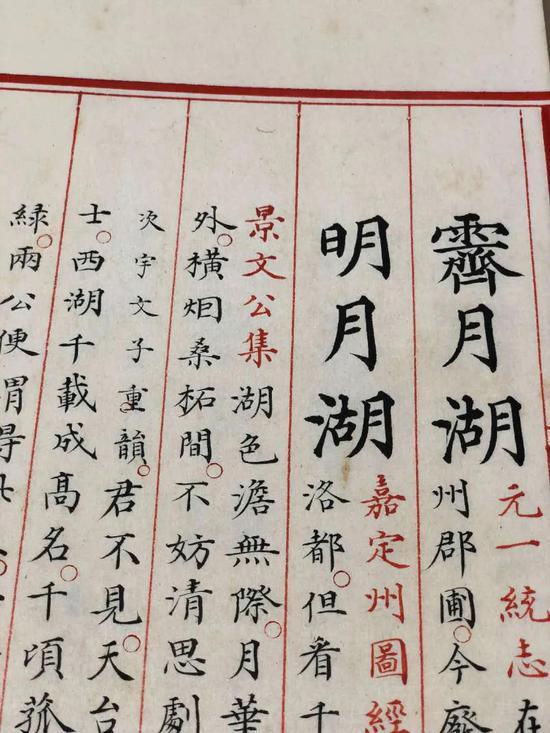 霽月湖
元一統志在
州郡圃。今廢
明月湖
嘉定州圖經
洛都。但看千
景文公集湖色澹無際。月華
外。橫烟桑柘間。不妨清思劇
次宇文子重韻。君不見。天台
士。西湖千載成高名。千頃菰
緑。兩公便